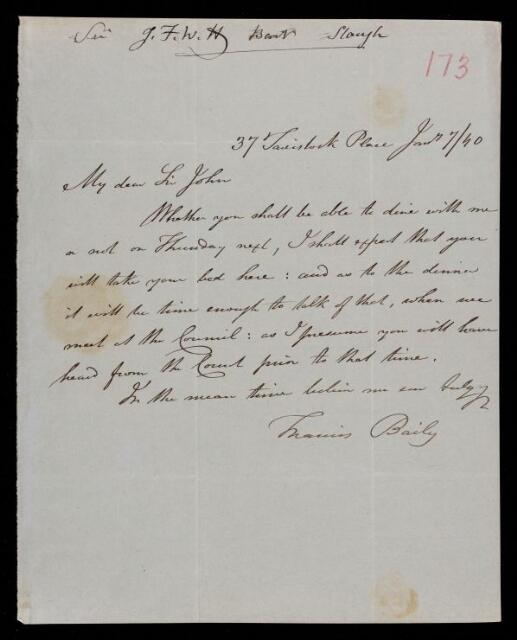 Sir J. F. W. H Bart Slough
173
37 Tavistock Place Jany 7/40
My dear Sir John
Whether you shall be able to dine with me
or not on Thursday next, I shall expect that you
will take your bed here: and as to the dinner
it will be time enough to talk of that, when we
meet at the Council: as I presume you will have
heard from the Court prior to that time.
In the mean time believe me ever truly yrs
Francis Baily